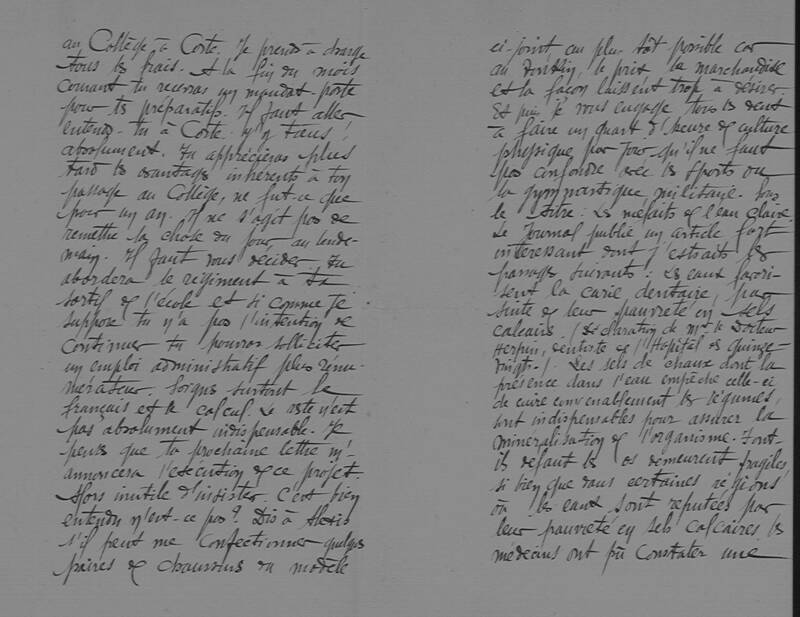 au Collège à Corte. Je prends à charge
tous les frais. A la fin du mois
courant tu recevras un mandat-poste
pour tes préparatifs. Il faut aller
entends-tu à Corte. N'y faus !
absolument. Tu apprécieras plus
tard les avantages inhérents à ton
passage au Collège, ne fut-ce que
pour un an. Il ne s'agit pas de
remettre la chose du jour au lende-
main. Il faut vous décider. Tu
aborderas le régiment à ta
sortie de l'école et si comme je
suppose tu n'a pas l'intention de
continuer tu pourras solliciter
un emploi administratif plus rénu-
mérateur. Soigne surtout le
français et le calcul. Le reste n'est
pas absolument indispensable. Je
pense que ta prochaine lettre m'-
annoncera l'exécution de ce projet.
Alors inutile d'insister. C'est bien
entendu n'est-ce pas ? Dis à Alexis
s'il peut me confectionner quelques
paires de chaussons du modèle
ci-joint, au plus tôt possible car
au, le prix la marchandise
et la façon laissent trop à désirer.
Et puis je vous engage tous les deux
à faire un quart d'heure de culture
physique par jour qu'il ne faut
pas confondre avec les sports ou
la gymnastique militaire. Sous
le titre : Les méfaits de l'eau claire
Le Journal publie un article fort
intéressant dont j'extraits les
passages suivants : Les eaux favori-
sent la carie dentaire, par
suite de leur pauvreté en sels
calcaires. (Déclaration de Mr. le Docteur
Herpin, dentiste de l'Hôpital des Quinze-
Vingts-). Les sels de chaux dont la
présence dans l'eau empêche celle-ci
de cuire convenablement les légumes,
sont indispensables pour assurer la
minéralisation de l'organisme. Font-
ils défaut les os demeurent fragiles,
si bien que dans certaines régions
où les eaux sont réputées par
leur pauvreté en sels calcaires les
médecins ont pu constater une